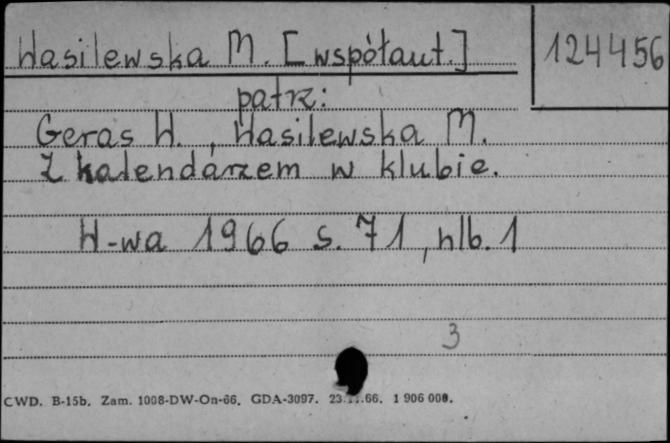 Wasilewska M. [współaut.]
124456
patrz:
Geras W., Wasilewska M.
Z kalendarzem w klubie.
W-wa 1966 s. 71, nlb. 1
3
CWD. B-15b. Zam. 1008-DW-On-66. GDA-3097. 1 906 000.